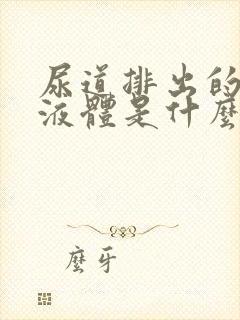 尿道排出的
液體是什麼
麼牙